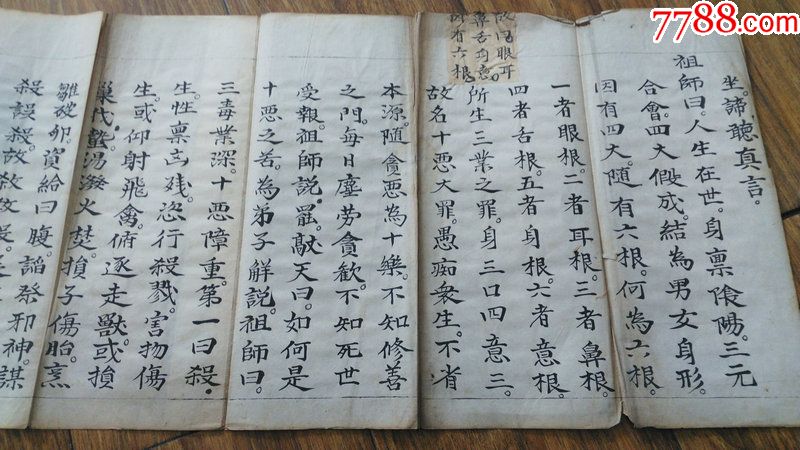 7788.com
坐。諦聽真言。
祖師曰。人生在世。身禀陰陽。三元
合會。四大假成。結為男女身形。
因有四大。隨有六根。何為六根。
一者眼根。二者耳根。三者鼻根。
四者舌根。五者身根。六者意根。
故曰眼耳
鼻舌身意
因有六根。
所生三業之罪。身三口四意三。
故名十惡大罪。愚痴衆生。不省
本源。隨貪惡為十樂。不知修善
之門。每日塵劳貪歡。不知死世
受報。祖師説罷。敵天曰。如何是
十惡之苦。為弟子解説。祖師曰。
三毒業深。十惡障重。第一曰殺。
生性禀凶残。恣行殺戮。害物傷
生。或仰射飛禽。俯逐走獸。或損
巢伐蟄。湯潑火焚。損子傷胎。烹
雛破卵。資給曰腹。謟祭邪神。謀
殺。誤殺。故殺